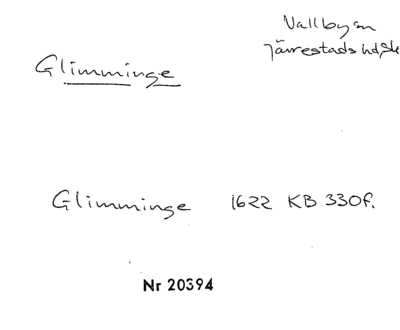 Vallby sn
Järrestads hd, Sk
Glimminge
Glimminge 1622 KB 330f.
Nr 20394